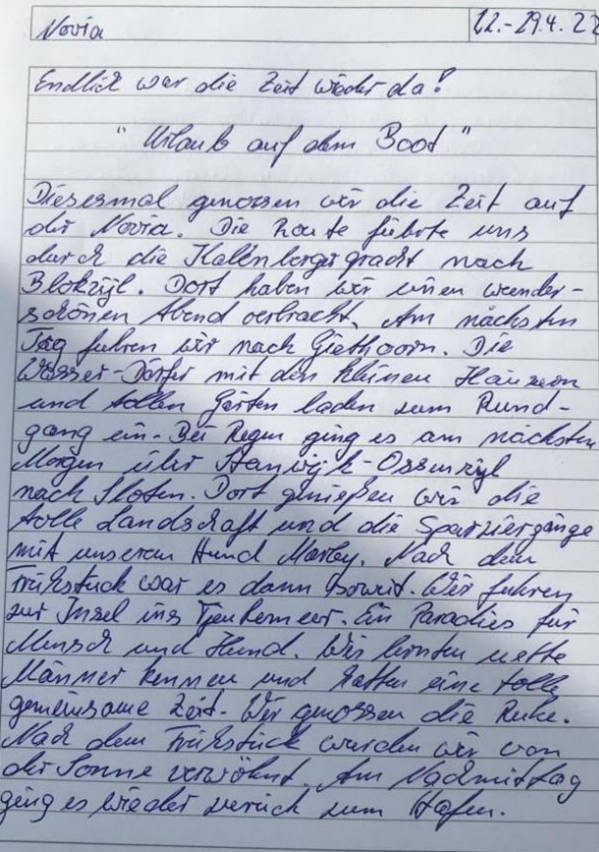 Novia
22.-29.4.22
Endlich war die Zeit wieder da!
"Urlaub auf dem Boot"
Diesesmal genossen wir die Zeit auf
der Novia. Die Route führte uns
durch die Kalenbergergracht nach
Blokzijl. Dort haben wir einen wunder-
schönen Abend verbracht. Am nächsten
Tag fuhren wir nach Giethoorn. Die
Wasser-Dörfer mit den kleinen Häusern
und tollen Gärten laden zum Rund-
gang ein. Bei Regen ging es am nächsten
Morgen über Stenwijk-Ossenzijl
nach Sloten. Dort genießen wir die
tolle Landschaft und die Spaziergänge
mit unserem Hund Marley. Nach dem
Frühstück war es dann soweit. Wir fuhren
zur Insel ins Tjeukemeer. Ein Paradies für
Mensch und Hund. Wir lernten nette
Männer kennen und hatten eine tolle
gemeinsame Zeit. Wir genossen die Ruhe.
Nach dem Frühstück wurden wir von
der Sonne verwöhnt. Am Nachmittag
ging es wieder zurück zum Hafen.